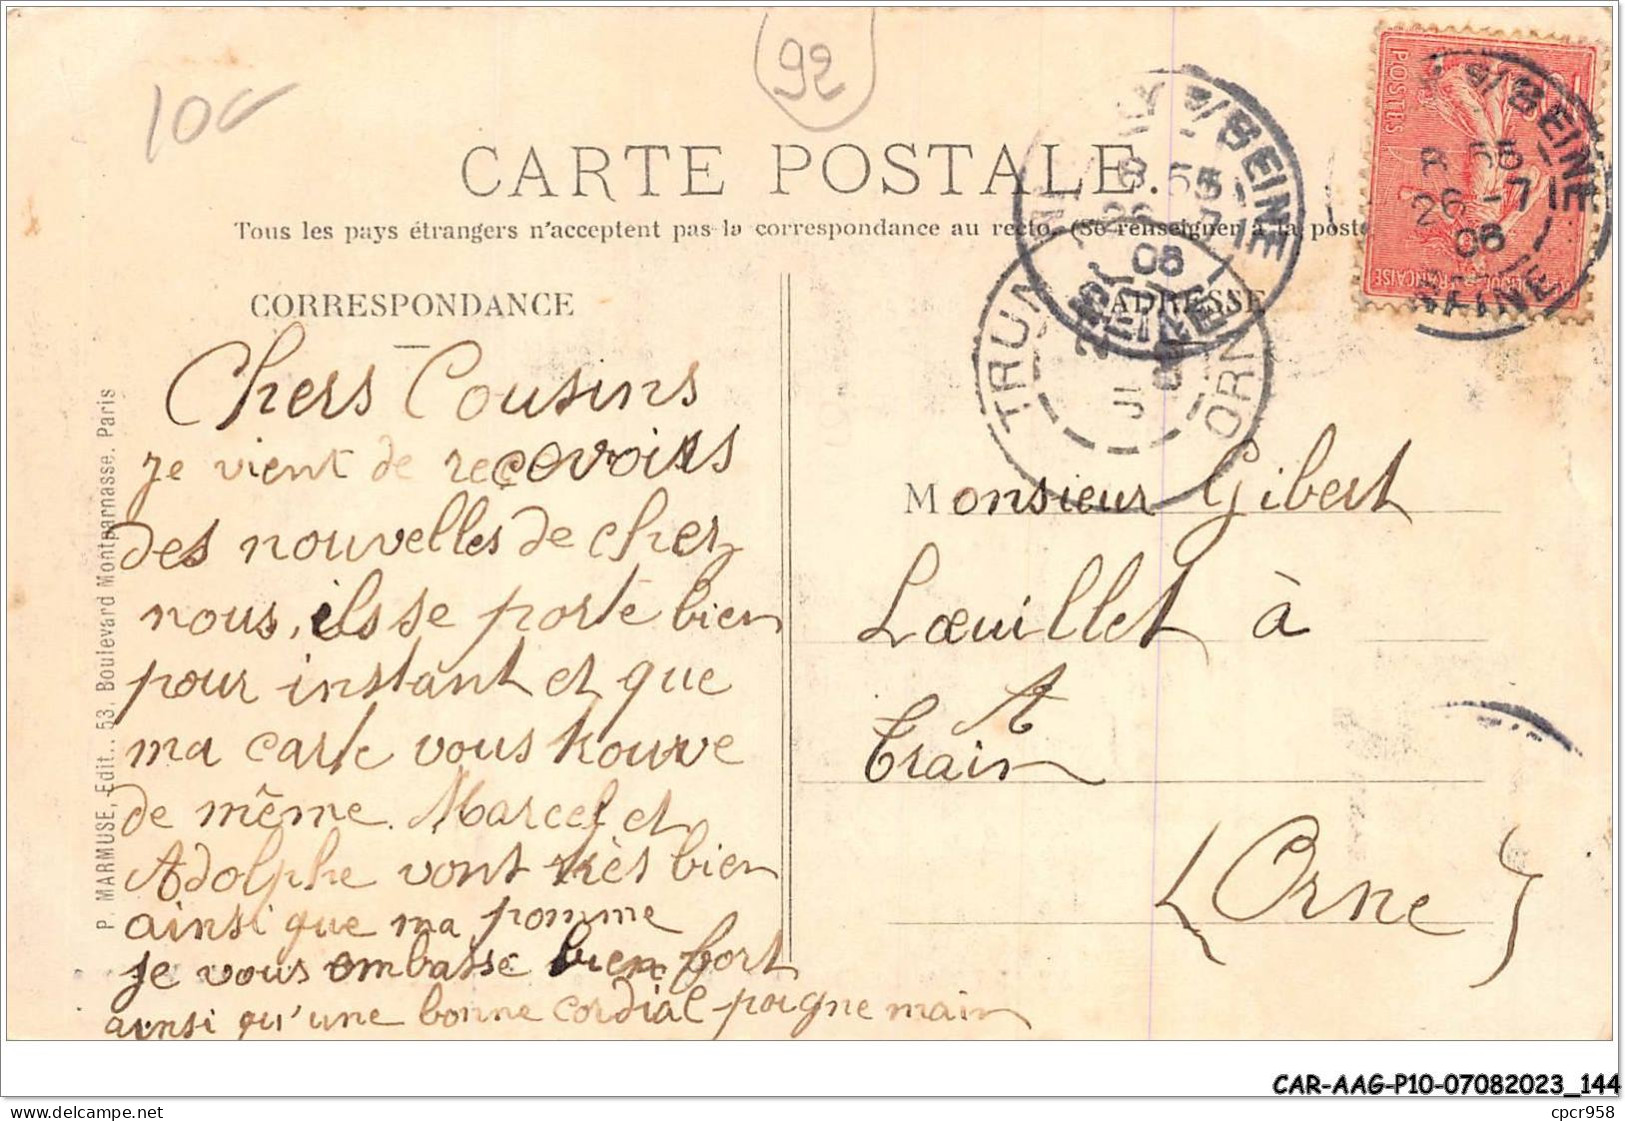 92
10
CARTE POSTALE.
Tous les pays étrangers n'acceptent pas la correspondance au recto. (Se renseigner à la poste
CORRESPONDANCE
ADRESSE
POSTES
S/SEINE
8 55
26 -7
06
SEINE
S/SEINE
8 55
26 7
06
SEINE
TRUN
ORN
P. MARMUSE, Edit.. 53, Boulevard Montparnasse. Paris
Chers Cousins
Je vient de reçevoirs
des nouvelles de cher
nous, ils se porte bien
pour instant et que
ma carte vous trouve
de même. Marcel et
Adolphe vont très bien
ainsi que ma pomme
je vous embasse bien fort
ainsi qu'une bonne cordial poigne main
Monsieur Gibert
Lœuillet à
Train
(Orne)
CAR-AAG-P10-07082023_144
cpcr958